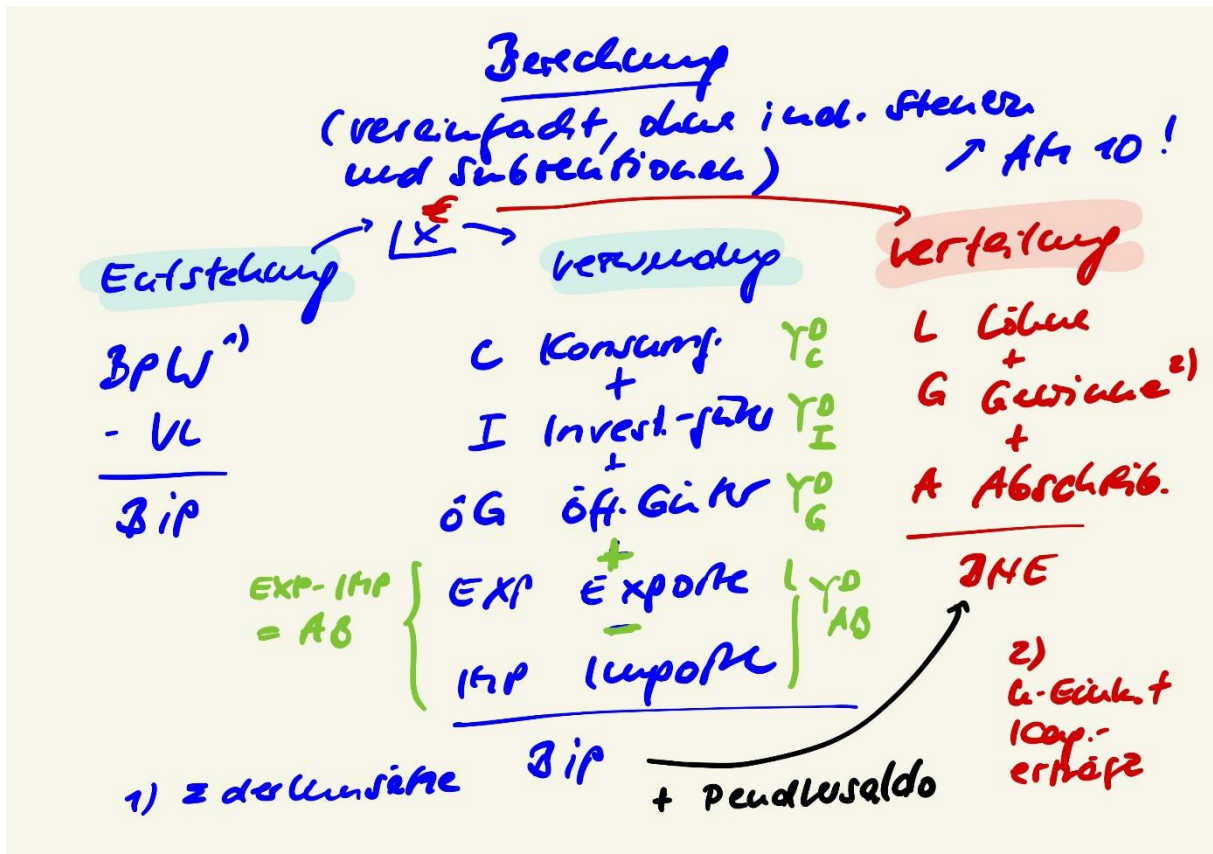 Berechnung
(vereinfacht, ohne ind. Steuern
und Subventionen)
↗ AM 10!
€
x
Entstehung
BPW 1)
- VL
BiP
Verwendung
C Konsumg. Y D C
+
I Invest.-güter Y D I
+
öG öff. Güter Y D G
+
EXP Exporte
−
IMP Importe
Y D AB
EXP-IMP
= AB
BiP
Verteilung
L Löhne
+
G Gewinne 2)
+
A Abschreib.
BNE
+ Pendlersaldo
1) Σ der Umsätze
2)
Kap.-
erträge